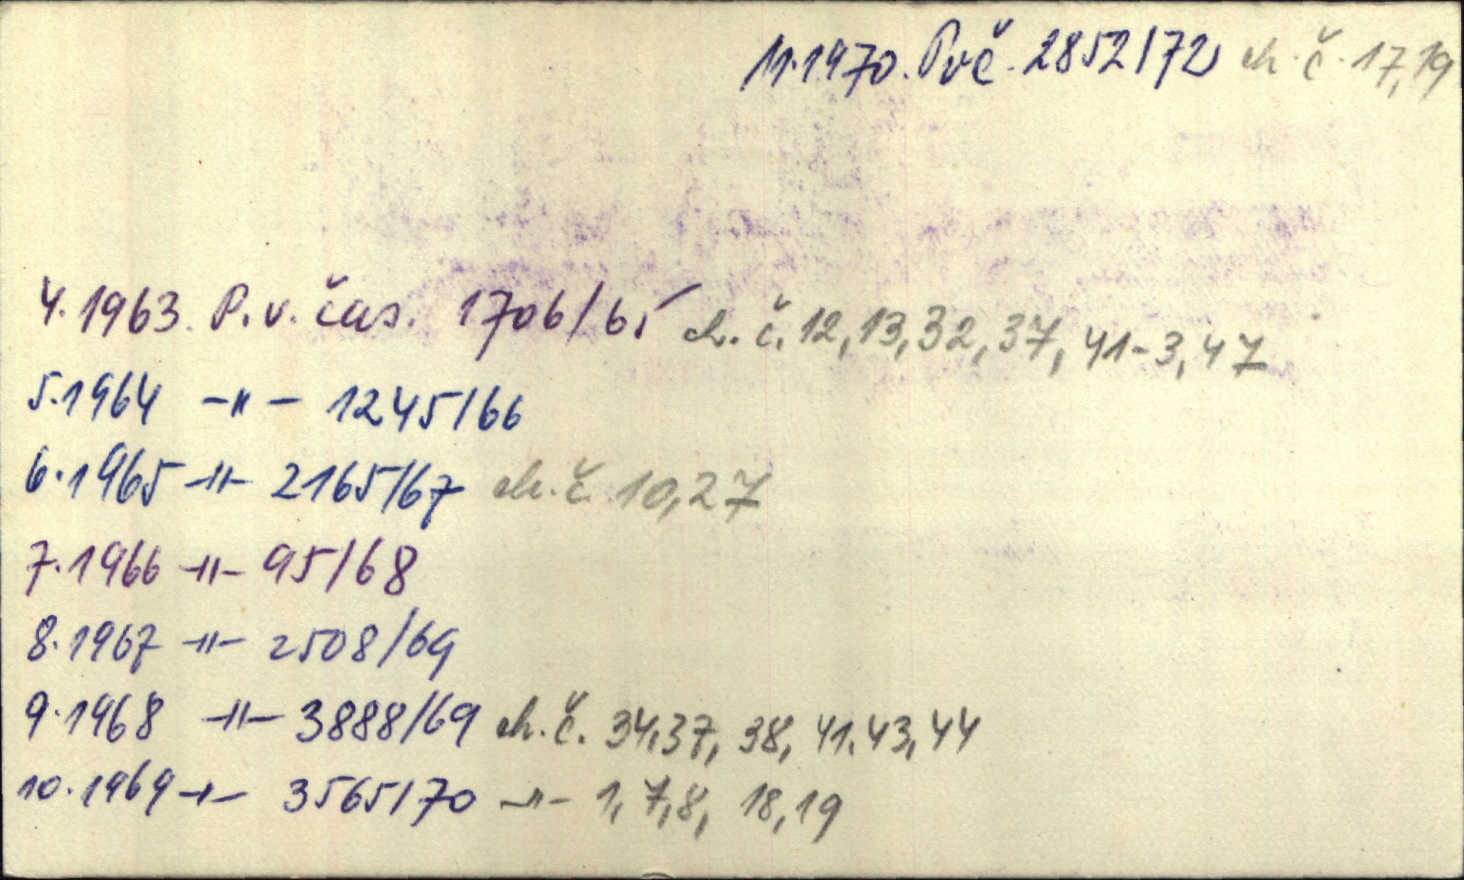 11.1970. Pvč. 2852/72 ch.č. 17,19
4.1963. P.v.čas. 1706/65 ch.č. 12,13,32,37,41-3,47
5.1964 -"- 1245/66
6.1965 -"- 2165/67 ch.č. 10,27
7.1966 -"- 95/68
8.1967 -"- 2508/69
9.1968 -"- 3888/69 ch.č. 34,37, 38, 41.43,44
10.1969 -"- 3565/70 -"- 1,7,8, 18,19